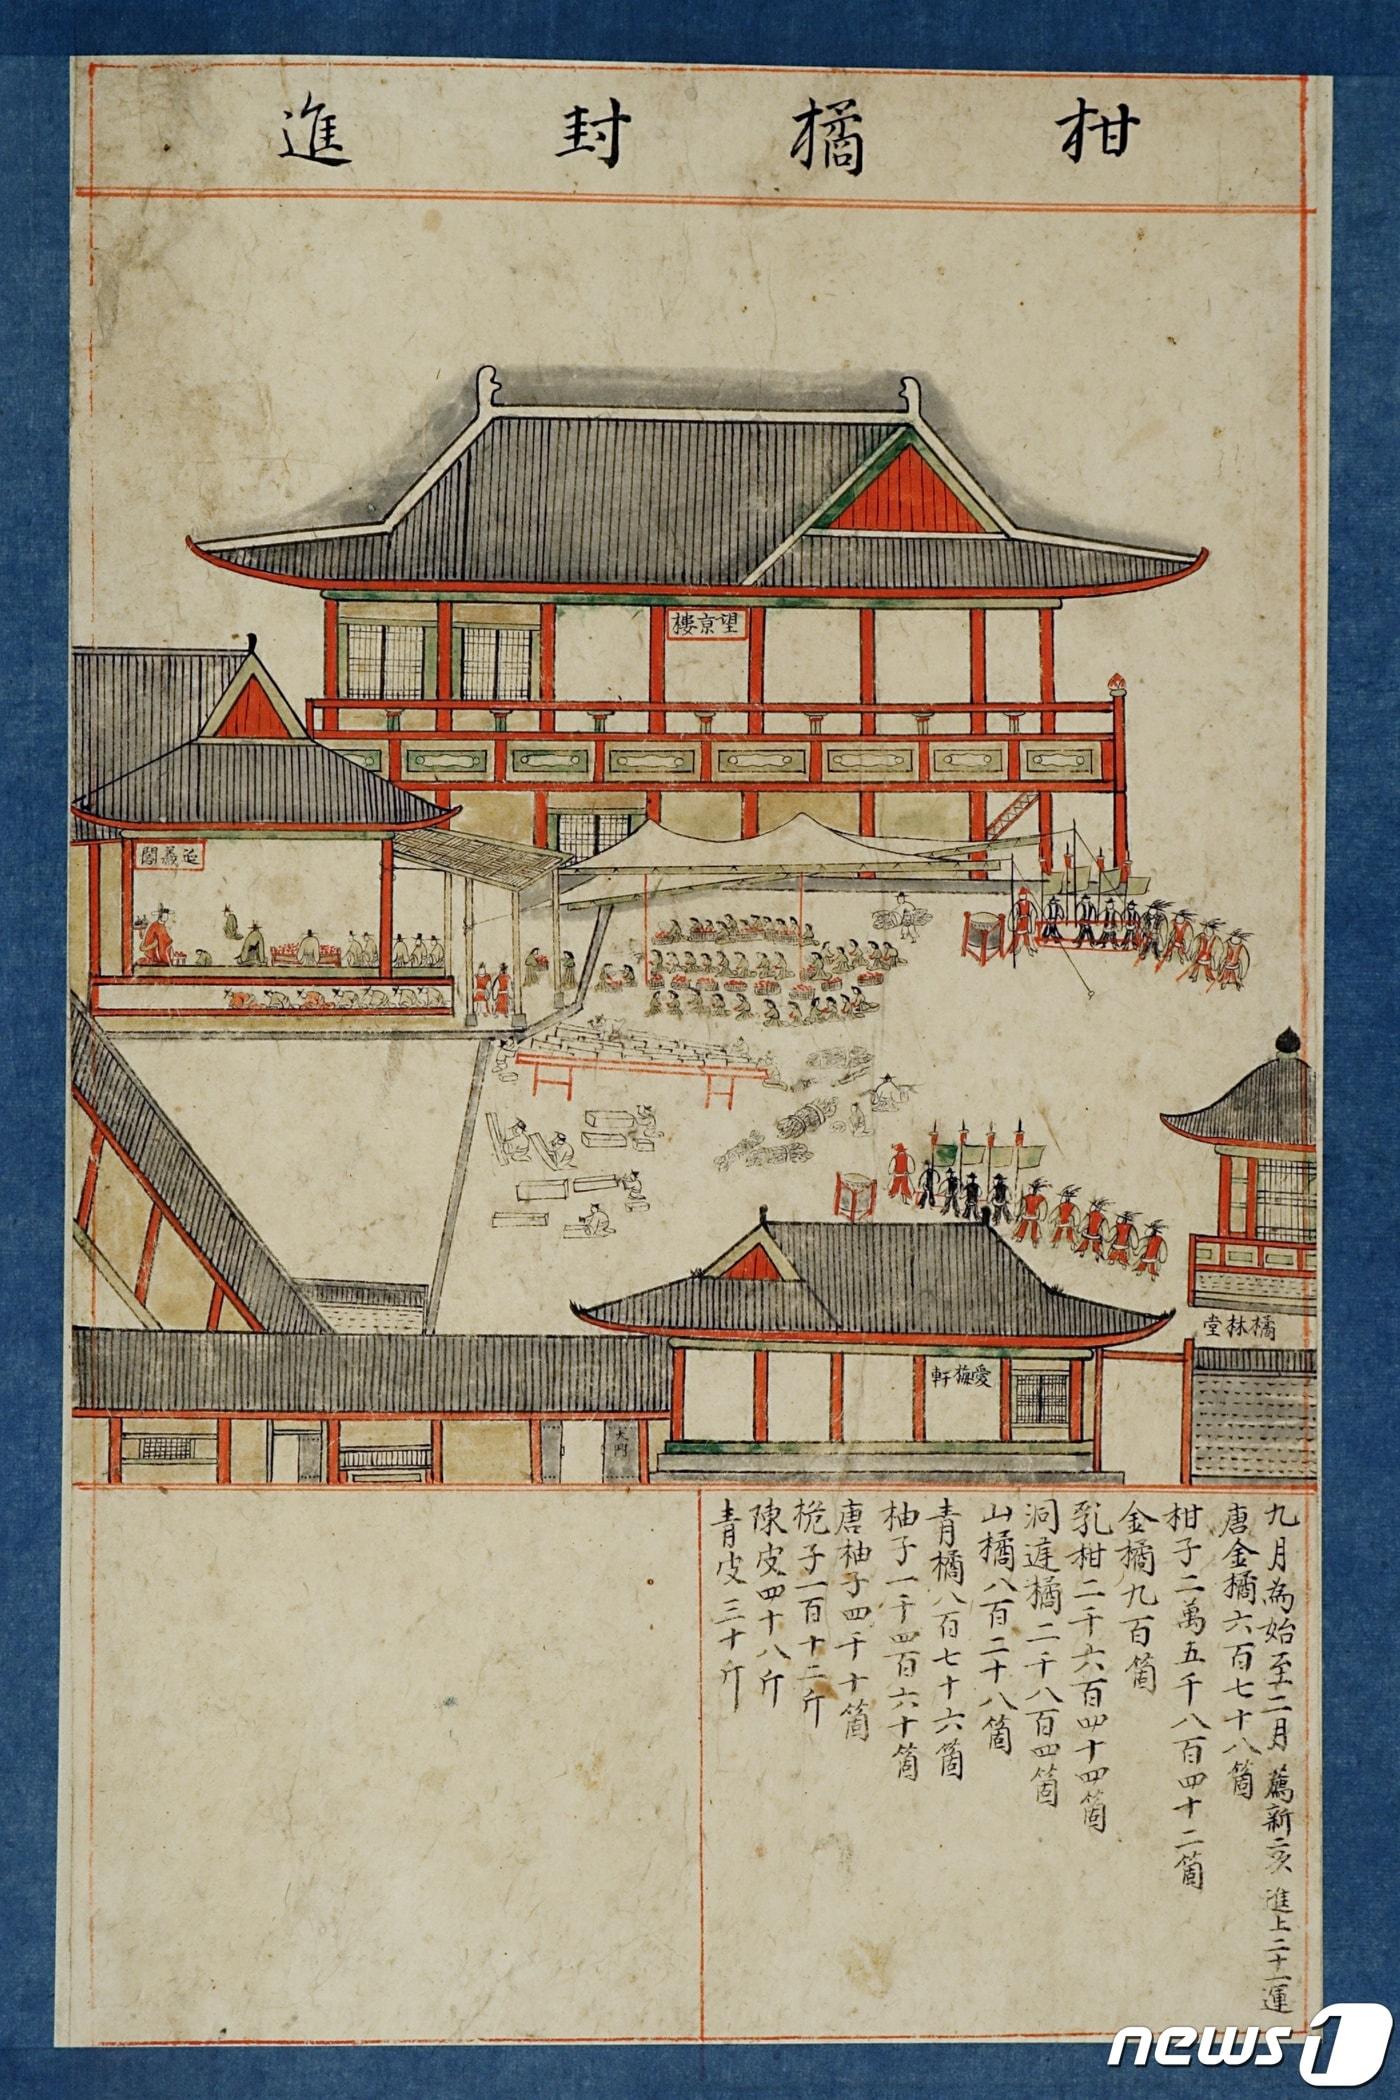 柑橘封進
望京樓
延羲閣
橘林堂
愛梅軒
大門
九月為始至二月 薦新二次 進上二十一運
唐金橘六百七十八箇
柑子二萬五千八百四十二箇
金橘九百箇
乳柑二千六百四十四箇
洞庭橘二千八百四箇
山橘八百二十八箇
青橘八百七十六箇
柚子一千四百六十箇
唐柚子四千十箇
梔子一百十二斤
陳皮四十八斤
青皮三十斤
news1